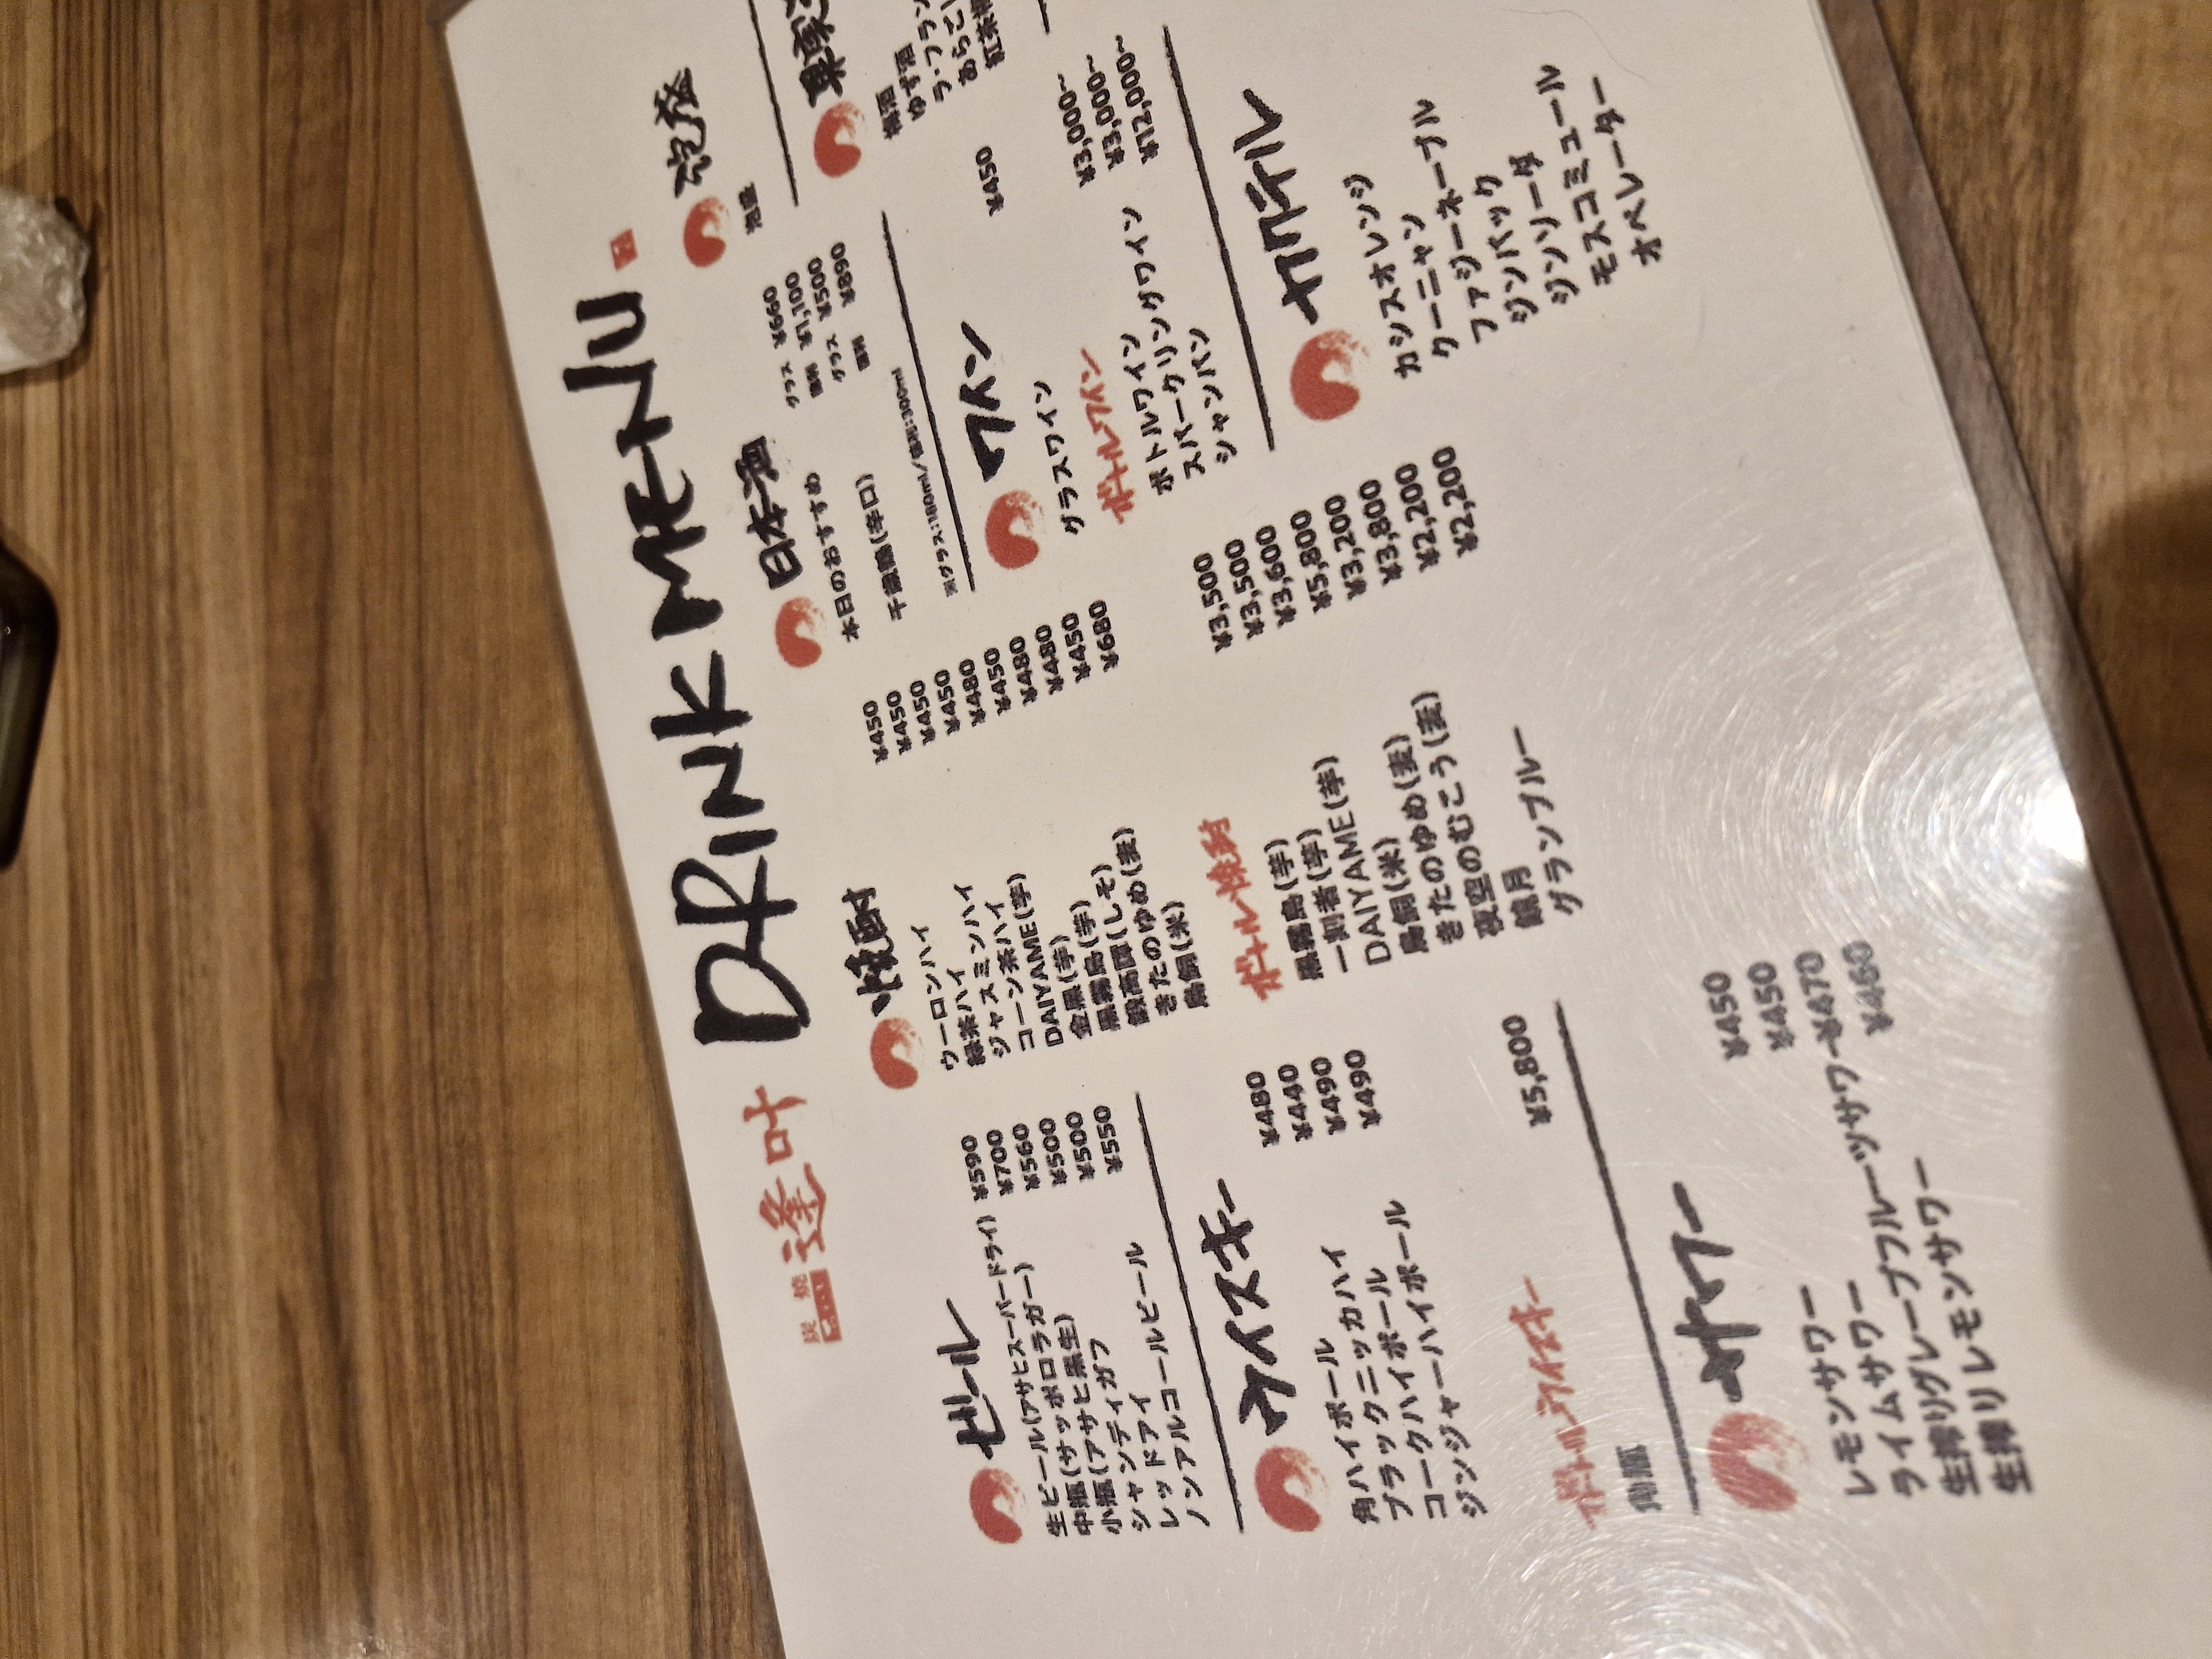 炭焼
逢叶
DRINK MENU
ビール
生ビール(アサヒスーパードライ) ¥590
中瓶(サッポロラガー) ¥700
小瓶(アサヒ黒生) ¥560
シャンディガフ ¥500
レッドアイ ¥500
ノンアルコールビール ¥550
ウイスキー
角ハイボール ¥480
ブラックニッカハイ ¥440
コークハイボール ¥490
ジンジャーハイボール ¥490
ボトルウイスキー
角瓶 ¥5,800
サワー
レモンサワー ¥450
ライムサワー ¥450
生搾りグレープフルーツサワー ¥470
生搾りレモンサワー ¥460
焼酎
ウーロンハイ ¥450
緑茶ハイ ¥450
ジャスミンハイ ¥450
コーン茶ハイ ¥450
DAIYAME(芋) ¥480
金黒(芋) ¥450
黒霧島(芋) ¥480
鍛高譚(しそ) ¥480
きたのゆめ(麦) ¥450
鳥飼(米) ¥680
ボトル焼酎
黒霧島(芋) ¥3,500
一刻者(芋) ¥3,500
DAIYAME(芋) ¥3,600
鳥飼(米) ¥5,800
きたのゆめ(麦) ¥3,200
夜空のむこう(麦) ¥3,800
鏡月 ¥2,200
グランブルー ¥2,200
日本酒
本日のおすすめ グラス ¥660
徳利 ¥1,100
千歳鶴(辛口) グラス ¥500
徳利 ¥890
※グラス:180ml/徳利:300ml
ワイン
グラスワイン ¥450
ボトルワイン
ボトルワイン ¥3,000~
スパークリングワイン ¥3,000~
シャンパン ¥12,000~
カクテル
カシスオレンジ
クーニャン
ファジーネーブル
ジンバック
ジンソーダ
モスコミュール
オペレーター
果実
梅酒
ゆず酒
ラ・フラン
あらごし
紅茶梅